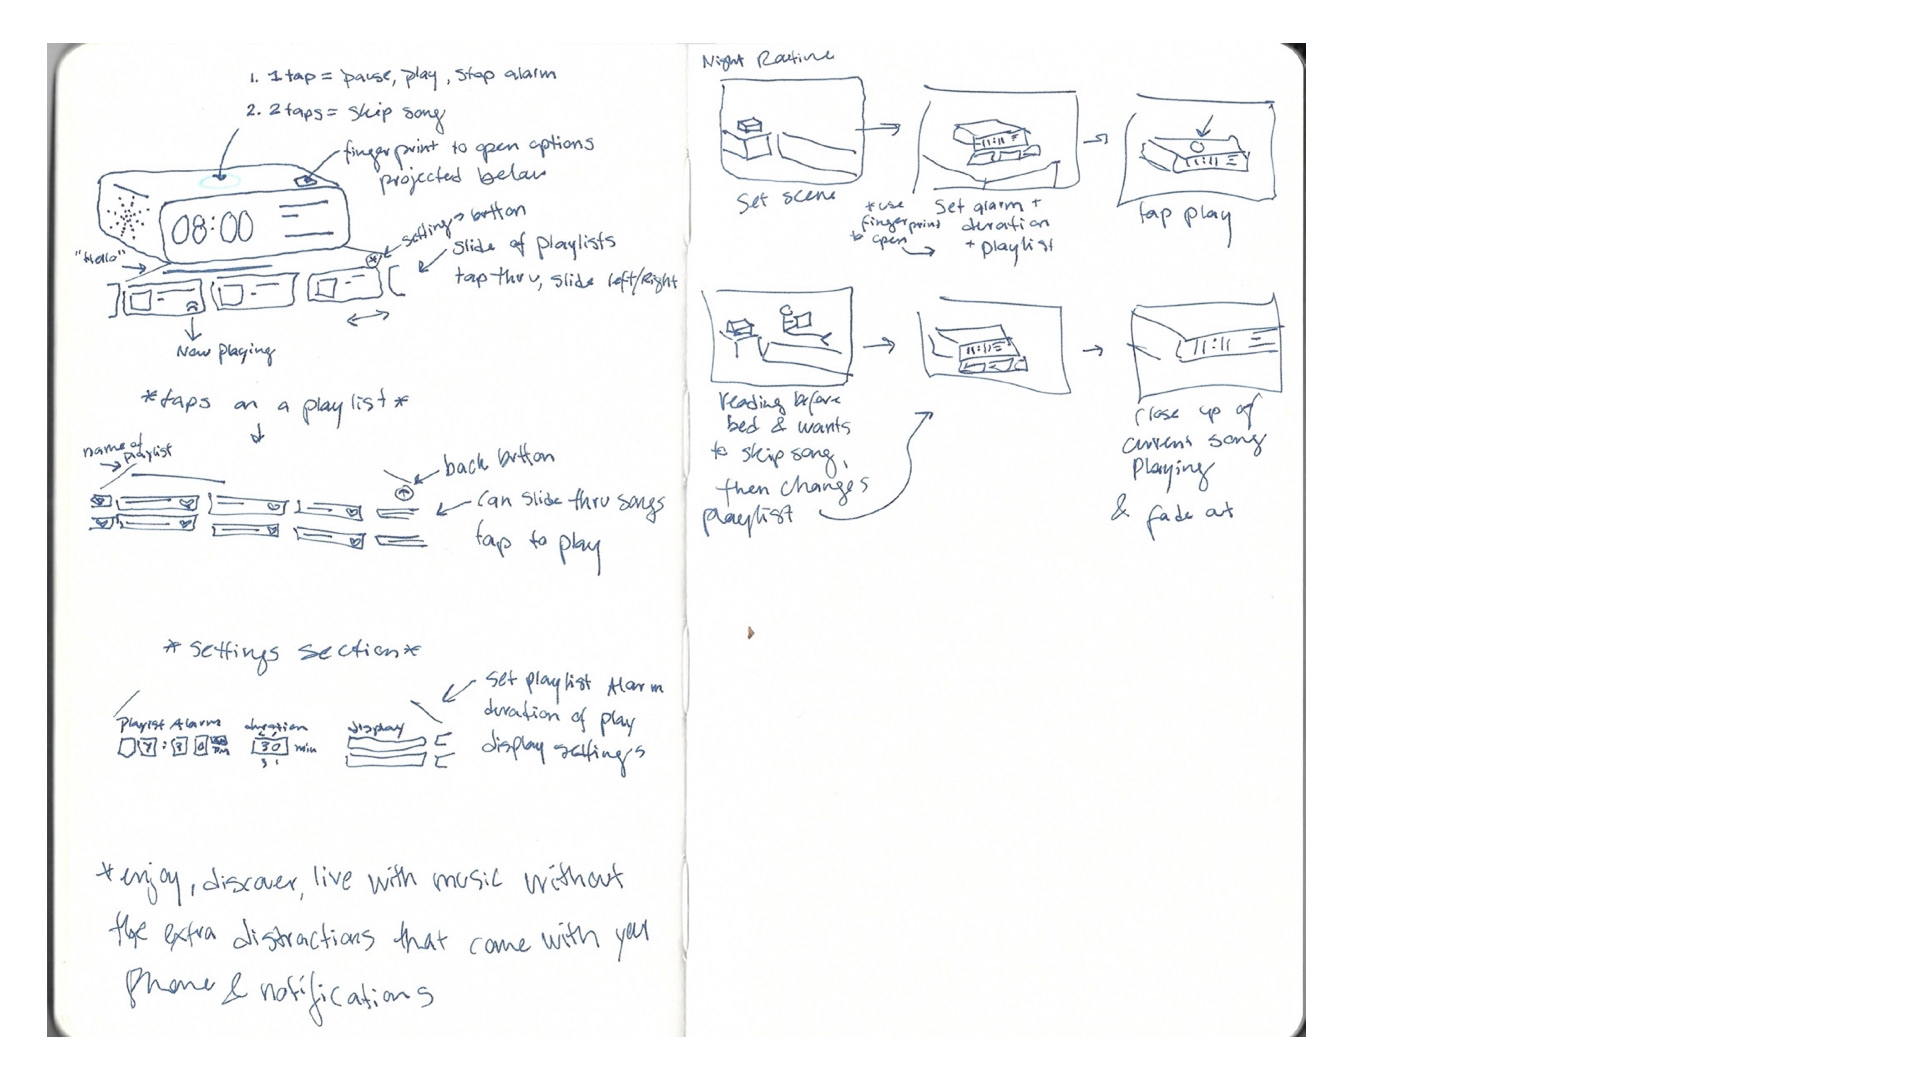 1. 1 tap = pause, play, stop alarm
2. 2 taps = skip song
fingerprint to open options
projected below
08:00
settings button
"Hello"
slide of playlists
tap thru, slide left/right
Now playing
*taps on a playlist*
name of
playlist
back button
can slide thru songs
tap to play
*settings section*
set playlist Alarm
duration of play
display settings
Playlist Alarm
duration
display
7:30
30 min
*enjoy, discover, live with music without
the extra distractions that come with your
phone & notifications
Night Routine
Set scene
11:11
*use
fingerprint
to open
Set alarm +
duration
+ playlist
11:11
tap play
reading before
bed & wants
to skip song,
then changes
playlist
11:11
11:11
Close up of
current song
playing
& fade out